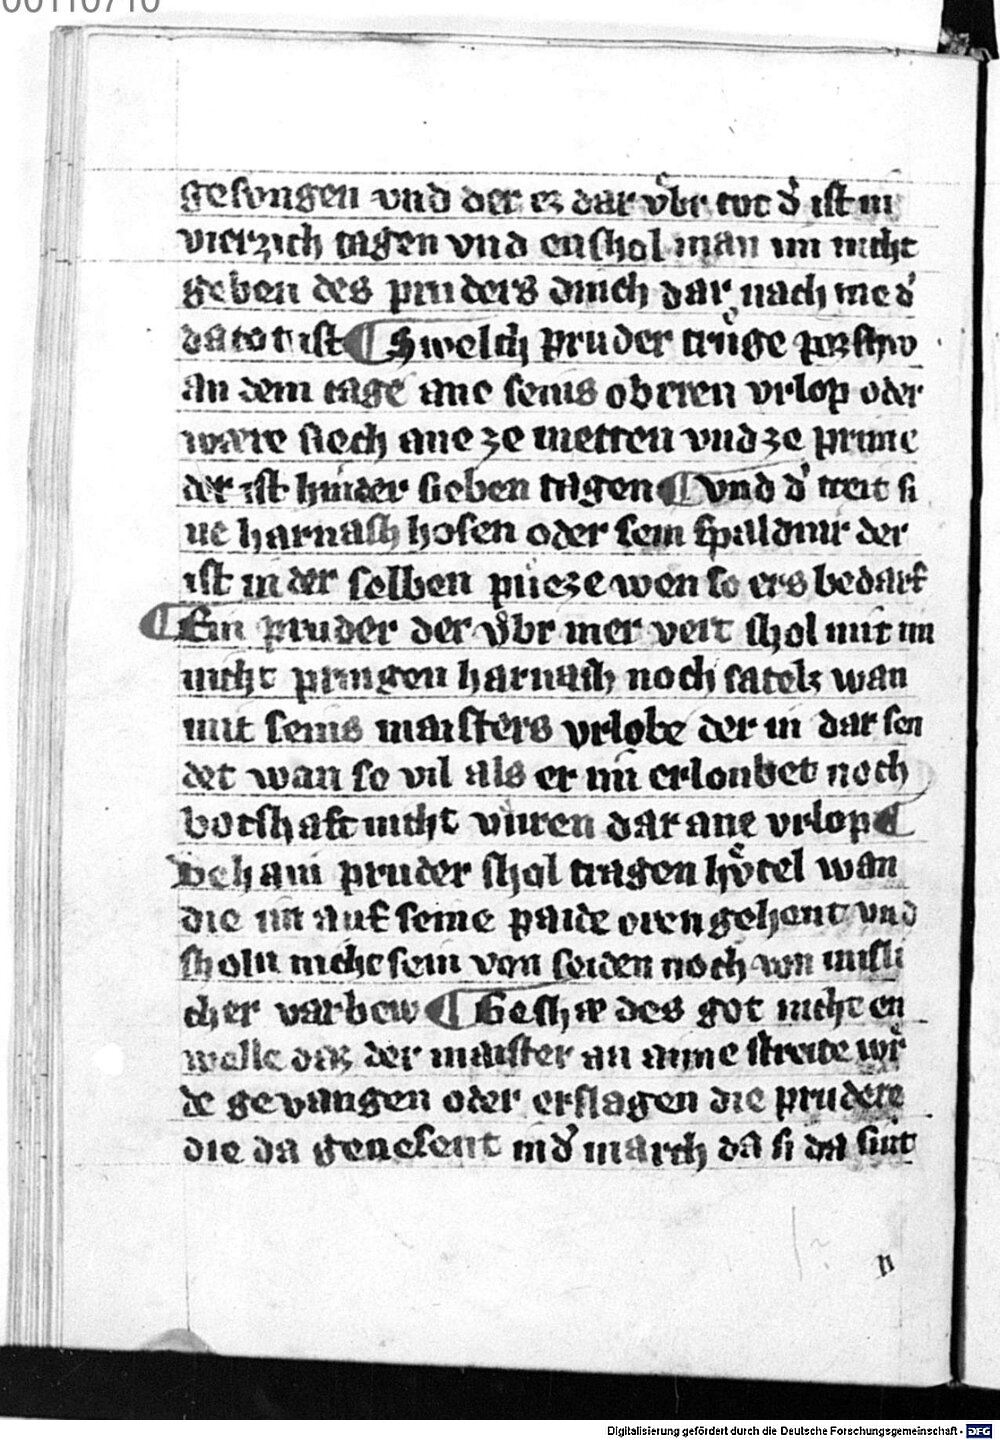 00110710
gesvngen vnd der ez dar vͤbr tvt dͤ ist in
vierzich tagen vnd enshol man im nicht
geben des pruders dinch dar nach vnd dͤ
da tot ist ¶ Swelch pruder truͤge
an dem tage ane seins obᵉren vrlop oder
wære siech ane ze metten vnd ze prime
der ist hinder sieben tagen ¶ vnd dͤ treit si
ne harnash hosen oder sein spaldnir der
ist in der selben pueze wen so ers bedarf
¶ Ein pruder der vͤbr mer vert shol mit im
nicht pringen harnash noch satelz wan
mit seins maisters vrlobe der in dar sen
det wan so vil als er im erloubet noch
botshaft nicht vuͤren dar ane vrlop ¶
Dehain pruder shol tragen huͤtel wan
die im auf seine paide oren gehent vnd
sholn nicht sein von seiden noch von misli
cher varbew ¶ Geshæ des got nicht en
welle daz der maister an aime streite wrͤ
de gevangen oder erslagen die prudere
die da genesent in dͤ march da si da sint
n
Digitalisierung gefördert durch die Deutsche Forschungsgemeinschaft - DFG